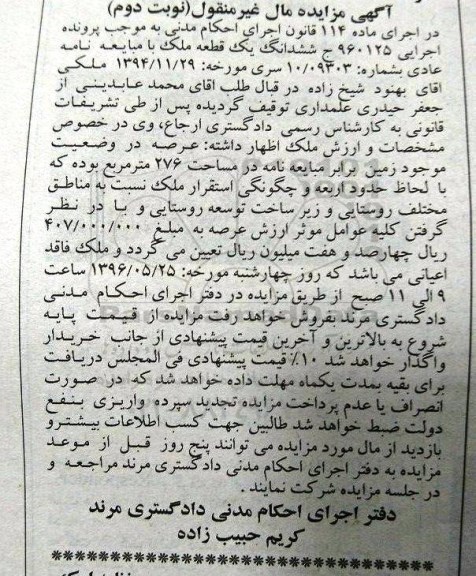 آگهی مزایده مال غیرمنقول(نوبت دوم)
در اجرای ماده ۱۱۴ قانون اجرای احکام مدنی به موجب پرونده
اجرایی ۹۶۰۱۲۵ ج ششدانگ یک قطعه ملک با مبایعه نامه
عادی بشماره: ۱۰/۰۹۳۰۳ سری مورخه: ۱۳۹۴/۱۱/۲۹ ملکی
آقای بهنود شیخ زاده در قبال طلب آقای محمد عابدینی از
جعفر حیدری علمداری توقیف گردیده پس از طی تشریفات
قانونی به کارشناس رسمی دادگستری ارجاع، وی در خصوص
مشخصات و ارزش ملک اظهار داشته: عرصه در وضعیت
موجود زمین برابر مبایعه نامه در مساحت ۲۷۶ مترمربع بوده که
با لحاظ حدود اربعه و چگونگی استقرار ملک نسبت به مناطق
مختلف روستایی و زیر ساخت توسعه روستایی و با در نظر
گرفتن کلیه عوامل موثر ارزش عرصه به مبلغ ۴۰۷/۰۰۰/۰۰۰
ریال چهارصد و هفت میلیون ریال تعیین می گردد و ملک فاقد
اعیانی می باشد که روز چهارشنبه مورخه: ۱۳۹۶/۰۵/۲۵ ساعت
۹ الی ۱۱ صبح از طریق مزایده در دفتر اجرای احکام مدنی
دادگستری مرند بفروش خواهد رفت مزایده از قیمت پایه
شروع به بالاترین و آخرین قیمت پیشنهادی از جانب خریدار
واگذار خواهد شد ۱۰٪ قیمت پیشنهادی فی المجلس دریافت
برای بقیه بمدت یکماه مهلت داده خواهد شد که در صورت
انصراف یا عدم پرداخت مزایده تجدید سپرده واریزی بنفع
دولت ضبط خواهد شد طالبین جهت کسب اطلاعات بیشتر و
بازدید از مال مورد مزایده می توانند پنج روز قبل از موعد
مزایده به دفتر اجرای احکام مدنی دادگستری مرند مراجعه و
در جلسه مزایده شرکت نمایند.
دفتر اجرای احکام مدنی دادگستری مرند
کریم حبیب زاده